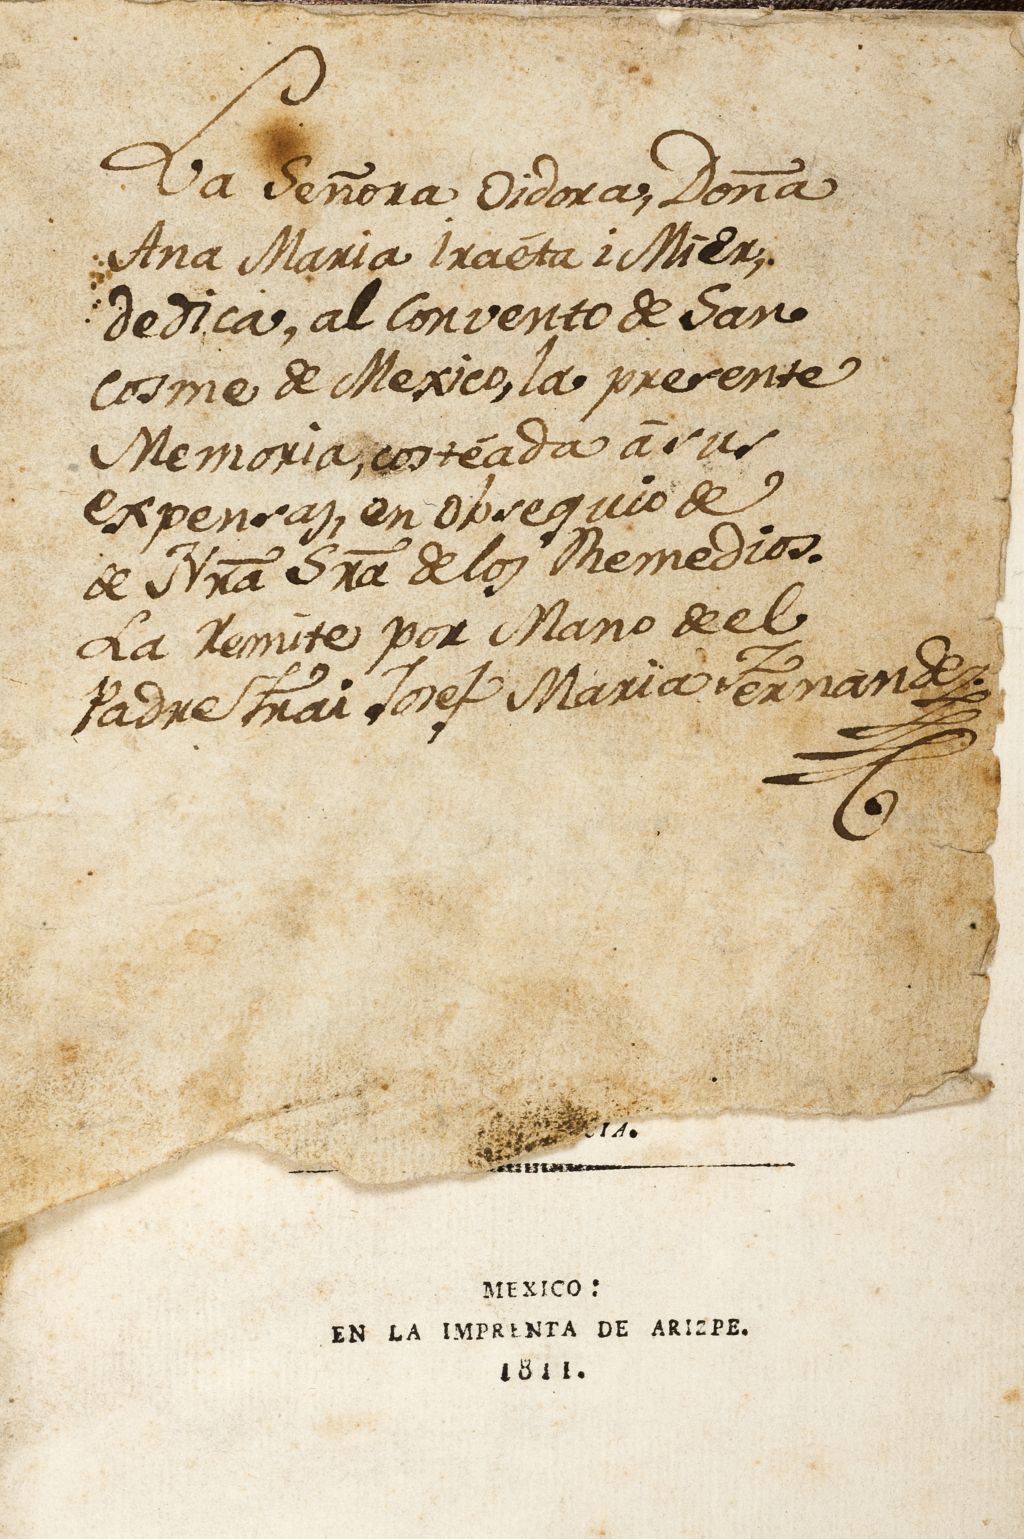 La Señora Oidora, Doña
Ana Maria Iraéta i Mier,
dedica, al Convento de San
Cosme de Mexico, la presente
Memoria, costéada á sus
expensas, en obsequio de
de Nrã Srã de los Remedios.
La Remite por Mano de el
Padre Frai Josef Maria Fernandez.
CIA.
MEXICO:
EN LA IMPRENTA DE ARIZPE.
1811.